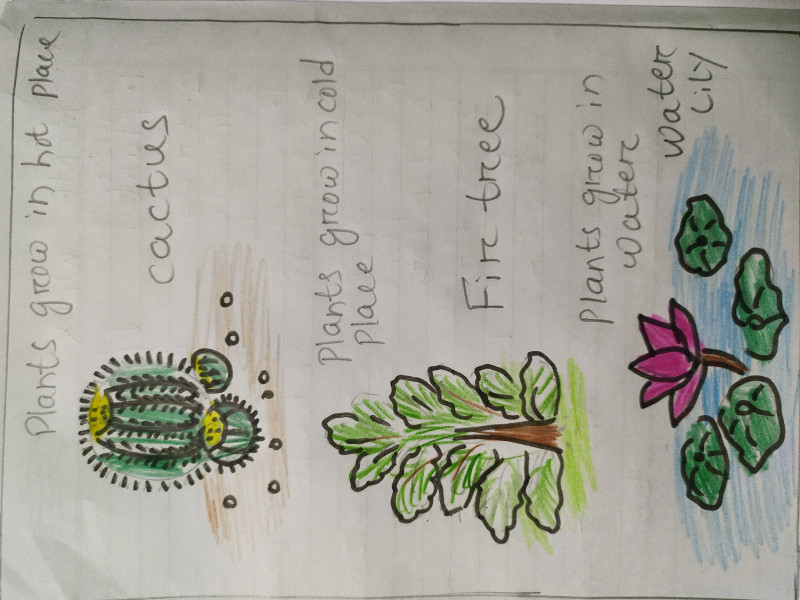 Plants grow in hot place
cactus
Plants grow in cold
place
Fir tree
Plants grow in
water
water
Lily